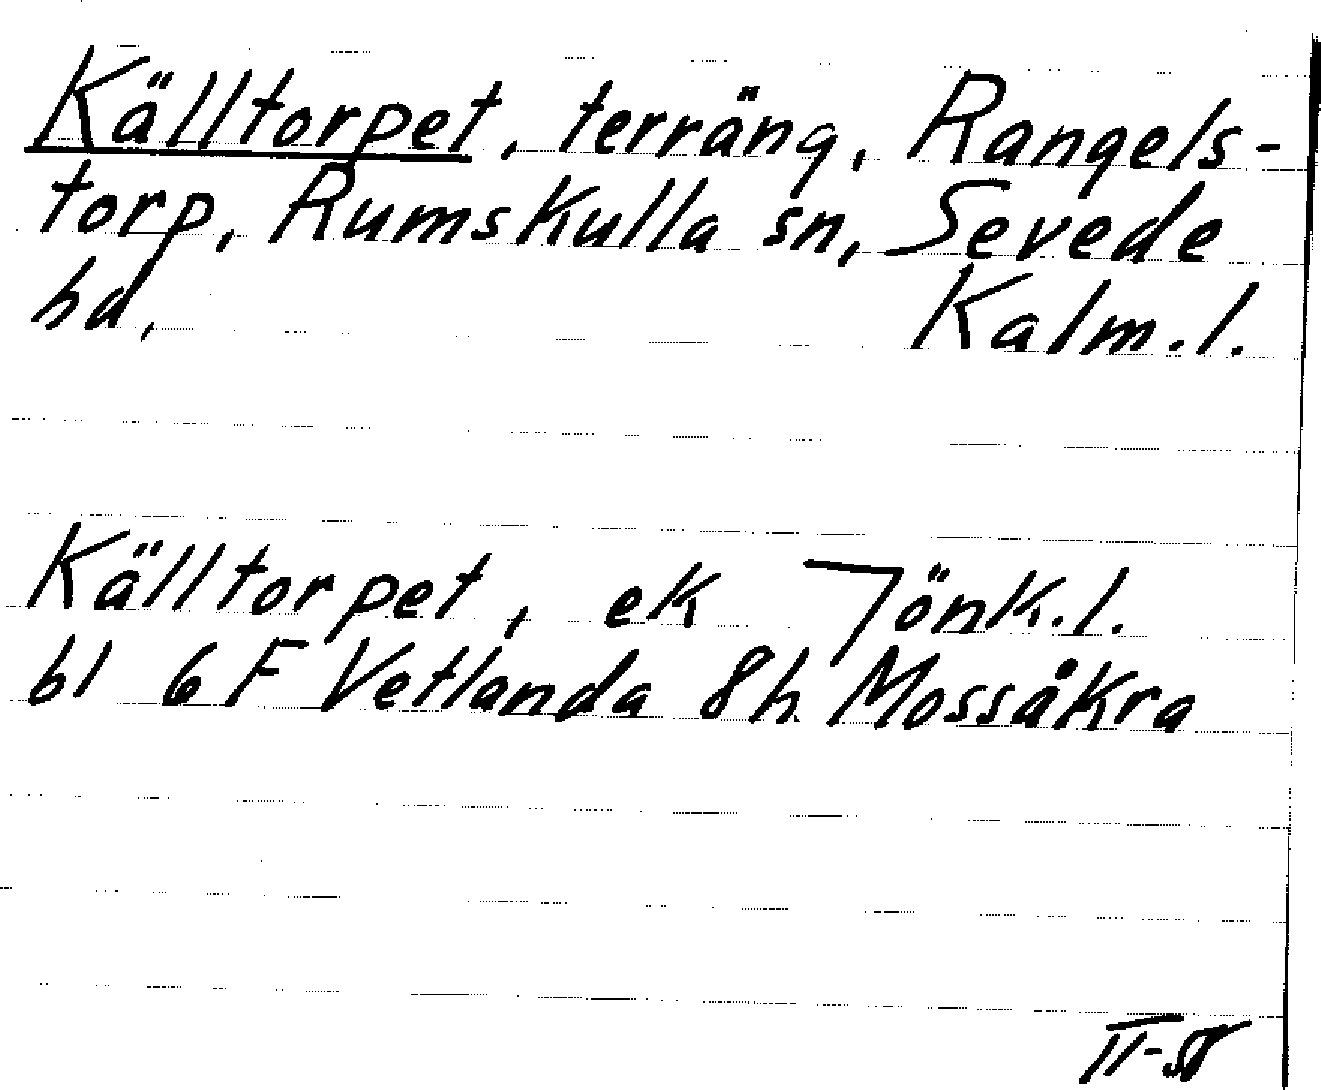 Källtorpet, terräng, Rangels-
torp, Rumskulla sn, Sevede
hd,
Kalm.l.
Källtorpet, ek Jönk.l.
bl 6F Vetlanda 8h Mossåkra